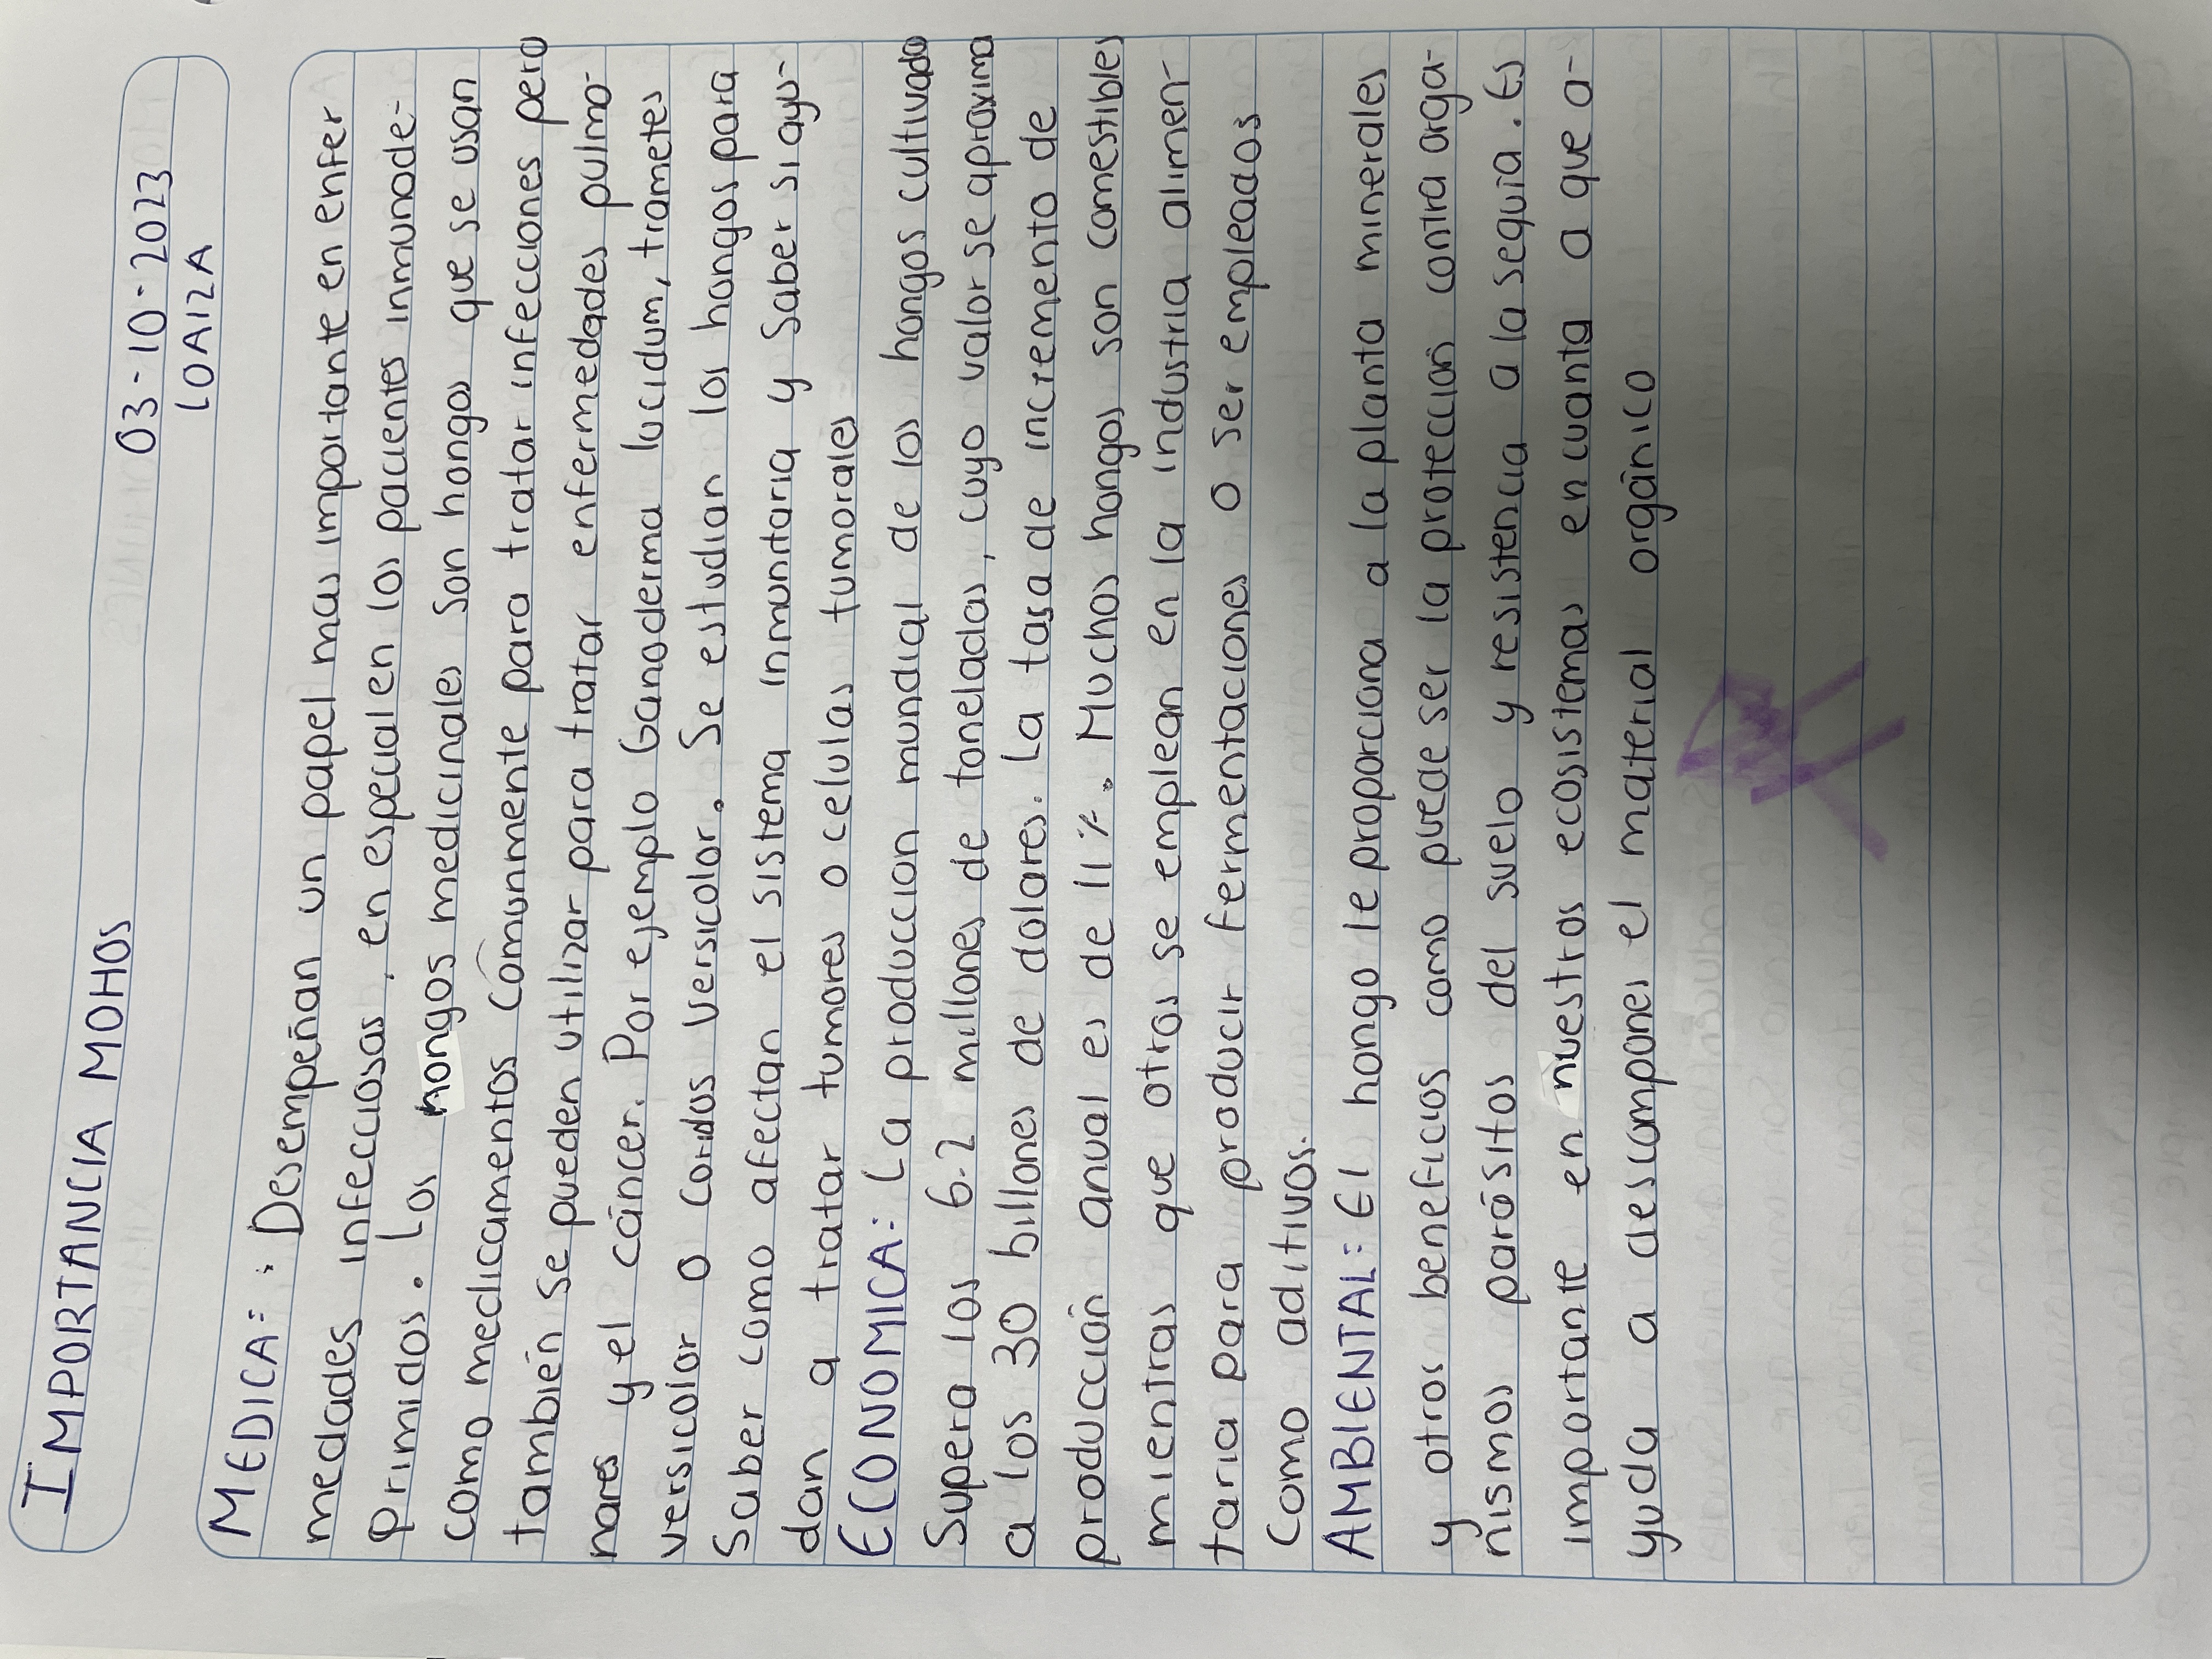 IMPORTANCIA MOHOS
03-10-2023
LOAIZA
MEDICA: Desempeñan un papel mas importante en enfer
medades infecciosas, en especial en los pacientes inmunode-
primidos. Los hongos medicinales son hongos que se usan
como medicamentos Comunmente para tratar infecciones pero
también se pueden utilizar para tratar enfermedades pulmo-
nares y el cáncer. Por ejemplo Ganoderma lucidum, trametes
versicolor o coridus versicolor. Se estudian los hongos para
Saber como afectan el sistema inmunitaria y saber si ayu-
dan a tratar tumores o celulas tumorales
ECONOMICA: La produccion mundial de los hongos cultivado
supera los 6.2 millones de toneladas, cuyo valor se aproxima
a los 30 billones de dolares. La tasa de incremento de
producción anual es de 11%. Muchos hongos son comestibles
mientras que otros se emplean en la industria alimen-
taria para producir fermentaciones o ser empleados
como aditivos.
AMBIENTAL: El hongo le proporciona a la planta minerales
y otros beneficios como puede ser la protección contra orga-
nismos parásitos del suelo y resistencia a la sequía. Es
importante en nuestros ecosistemas en cuanta a que a-
yuda a descompones el material orgánico